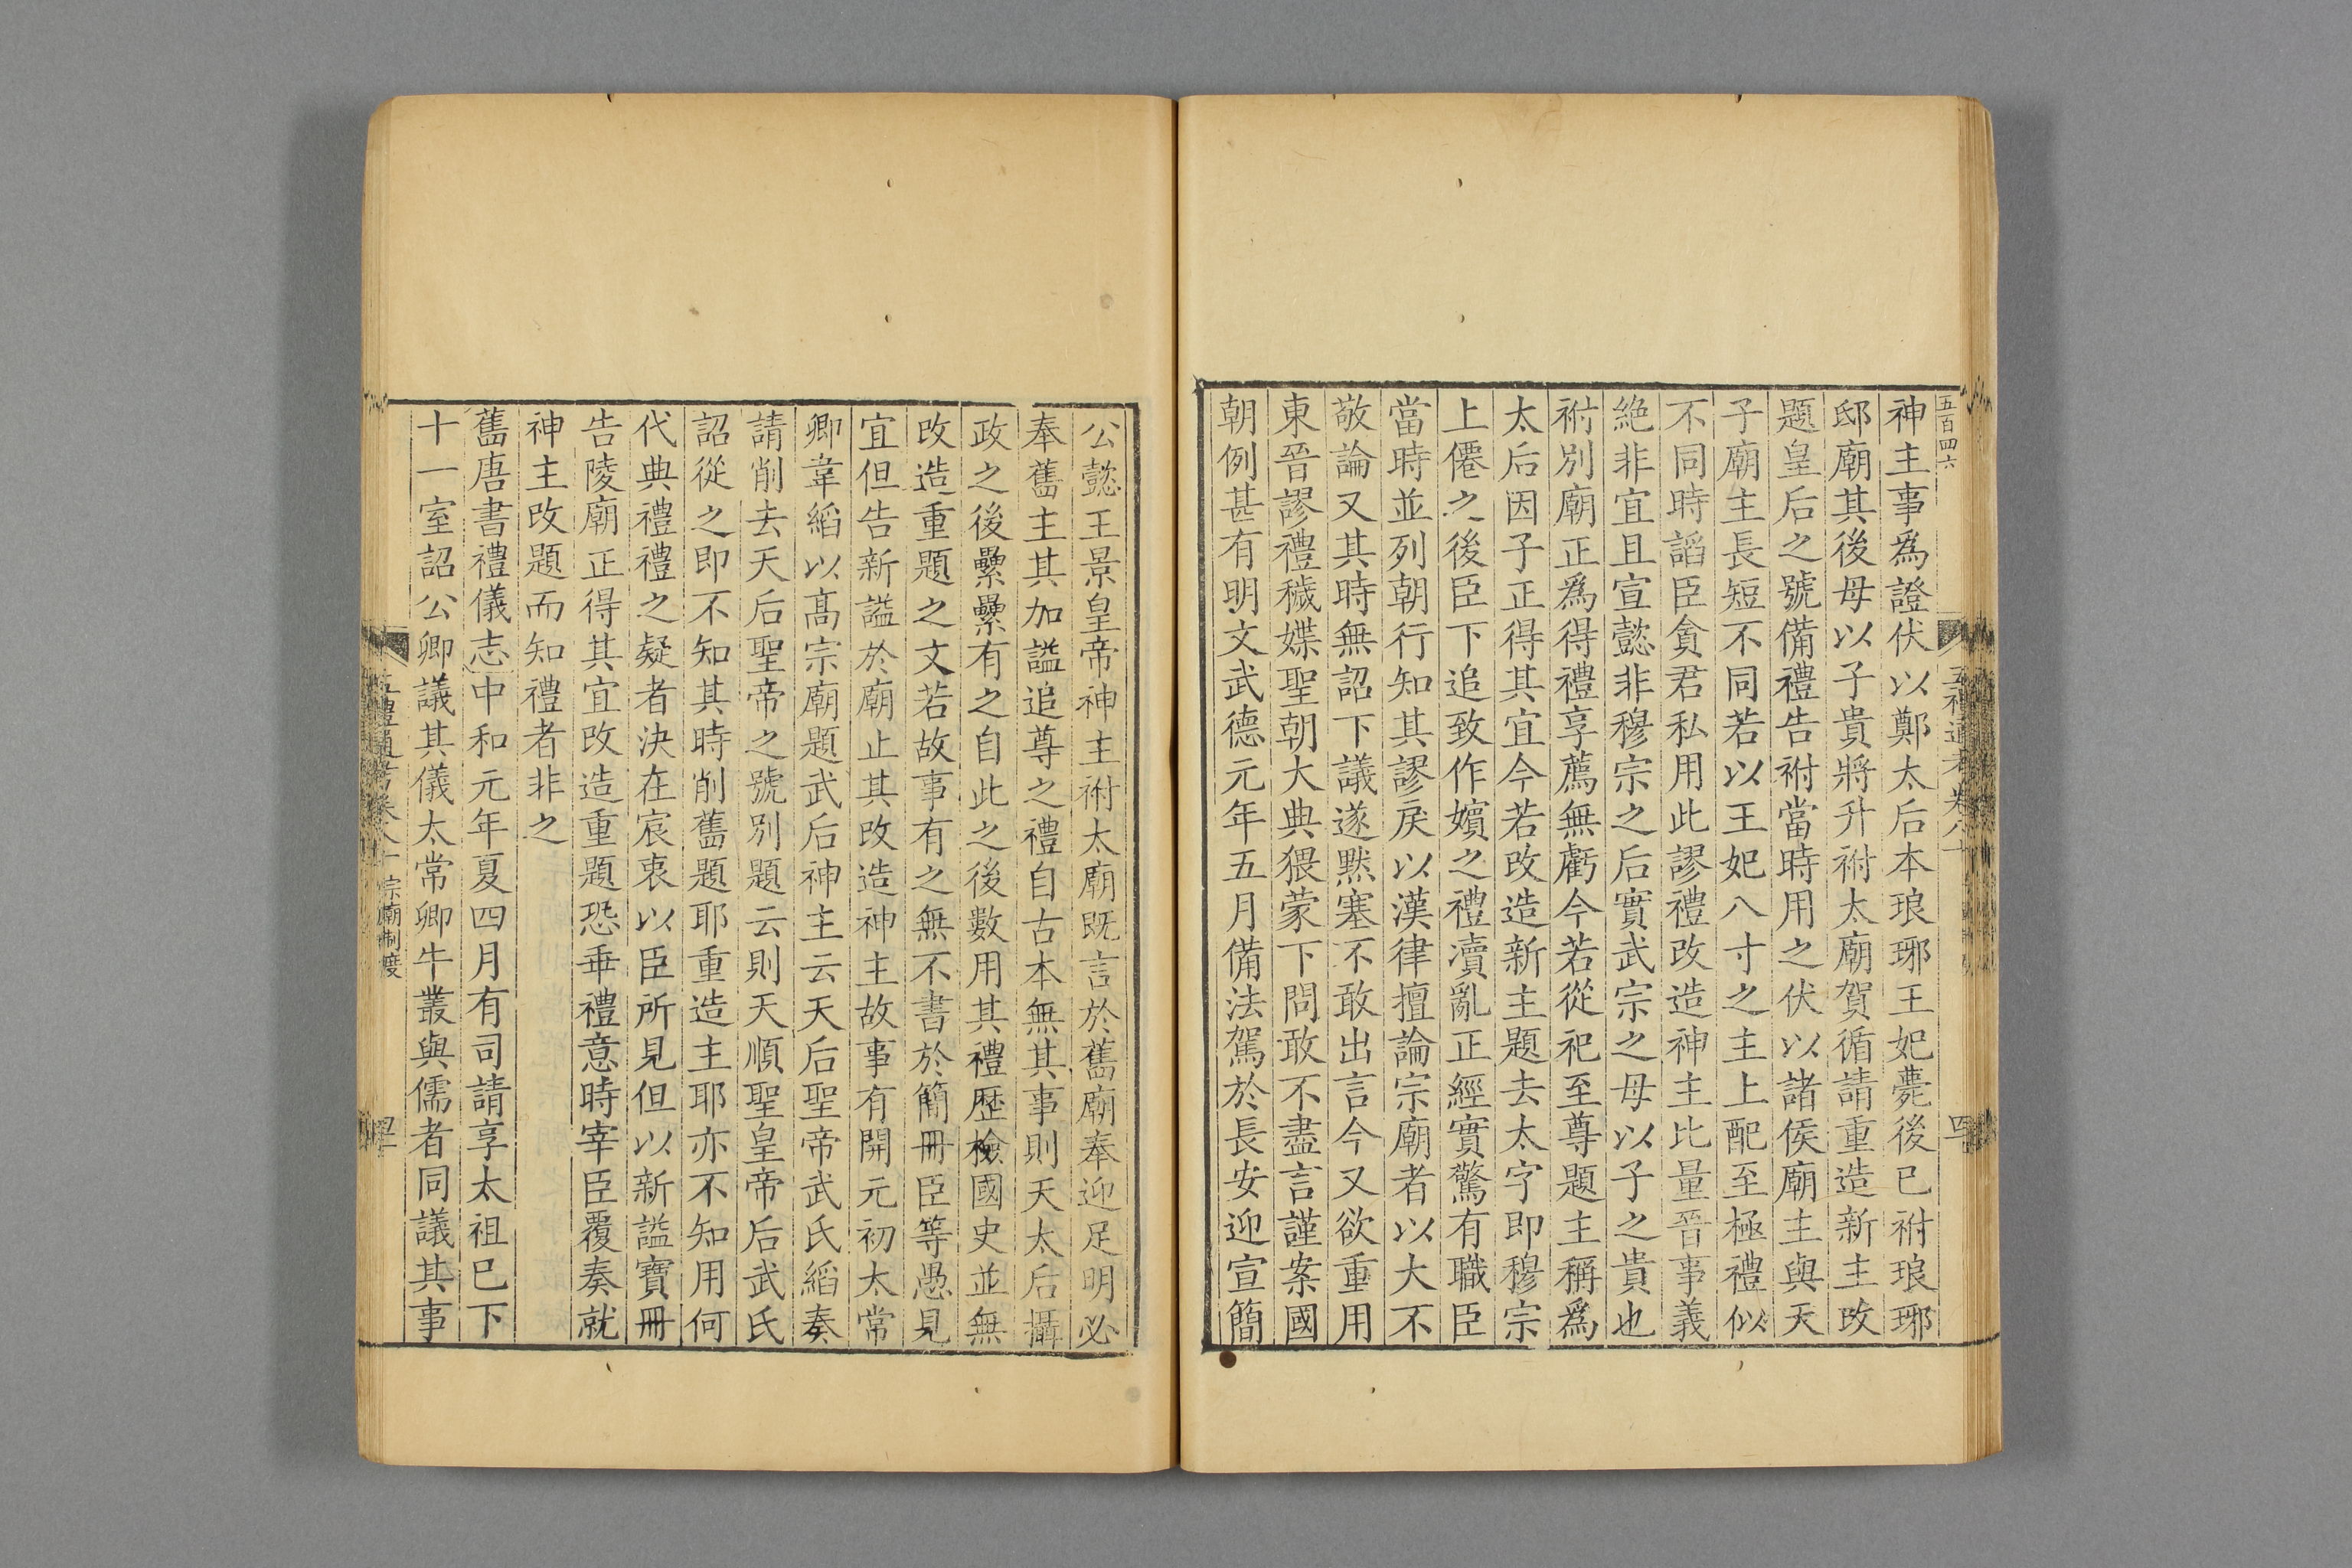 五百四六
神主事爲證伏以鄭太后本琅琊王妃薨後已祔琅琊
邸廟其後母以子貴將升祔太廟賀循請重造新主改
題皇后之號備禮告祔當時用之伏以諸侯廟主與天
子廟主長短不同若以王妃八寸之主上配至極禮似
不同時諂臣貪君私用此謬禮改造神主比量晉事義
絶非宜且宣懿非穆宗之后實武宗之母以子之貴也
祔別廟正爲得禮享薦無虧今若從祀至尊題主稱爲
太后因子正得其宜今若改造新主題去太字即穆宗
上僊之後臣下追致作嬪之禮瀆亂正經實驚有職臣
當時並列朝行知其謬戾以漢律擅論宗廟者以大不
敬論又其時無詔下議遂默塞不敢出言今又欲重用
東晉謬禮穢媟聖朝大典猥蒙下問敢不盡言謹案國
朝例甚有明文武德元年五月備法駕於長安迎宣簡
公懿王景皇帝神主祔太廟旣言於舊廟奉迎足明必
奉舊主其加謚追尊之禮自古本無其事則天太后攝
政之後纍纍有之自此之後數用其禮歷檢國史並無
改造重題之文若故事有之無不書於簡冊臣等愚見
宜但告新謚於廟止其改造神主故事有開元初太常
卿韋縚以髙宗廟題武后神主云天后聖帝武氏縚奏
請削去天后聖帝之號別題云則天順聖皇帝后武氏
詔從之即不知其時削舊題耶重造主耶亦不知用何
代典禮禮之疑者決在宸衷以臣所見但以新謚寶冊
告陵廟正得其宜改造重題恐乖禮意時宰臣覆奏就
神主改題而知禮者非之
舊唐書禮儀志中和元年夏四月有司請享太祖已下
十一室詔公卿議其儀太常卿牛叢與儒者同議其事
五禮通考卷八十 宗廟制度